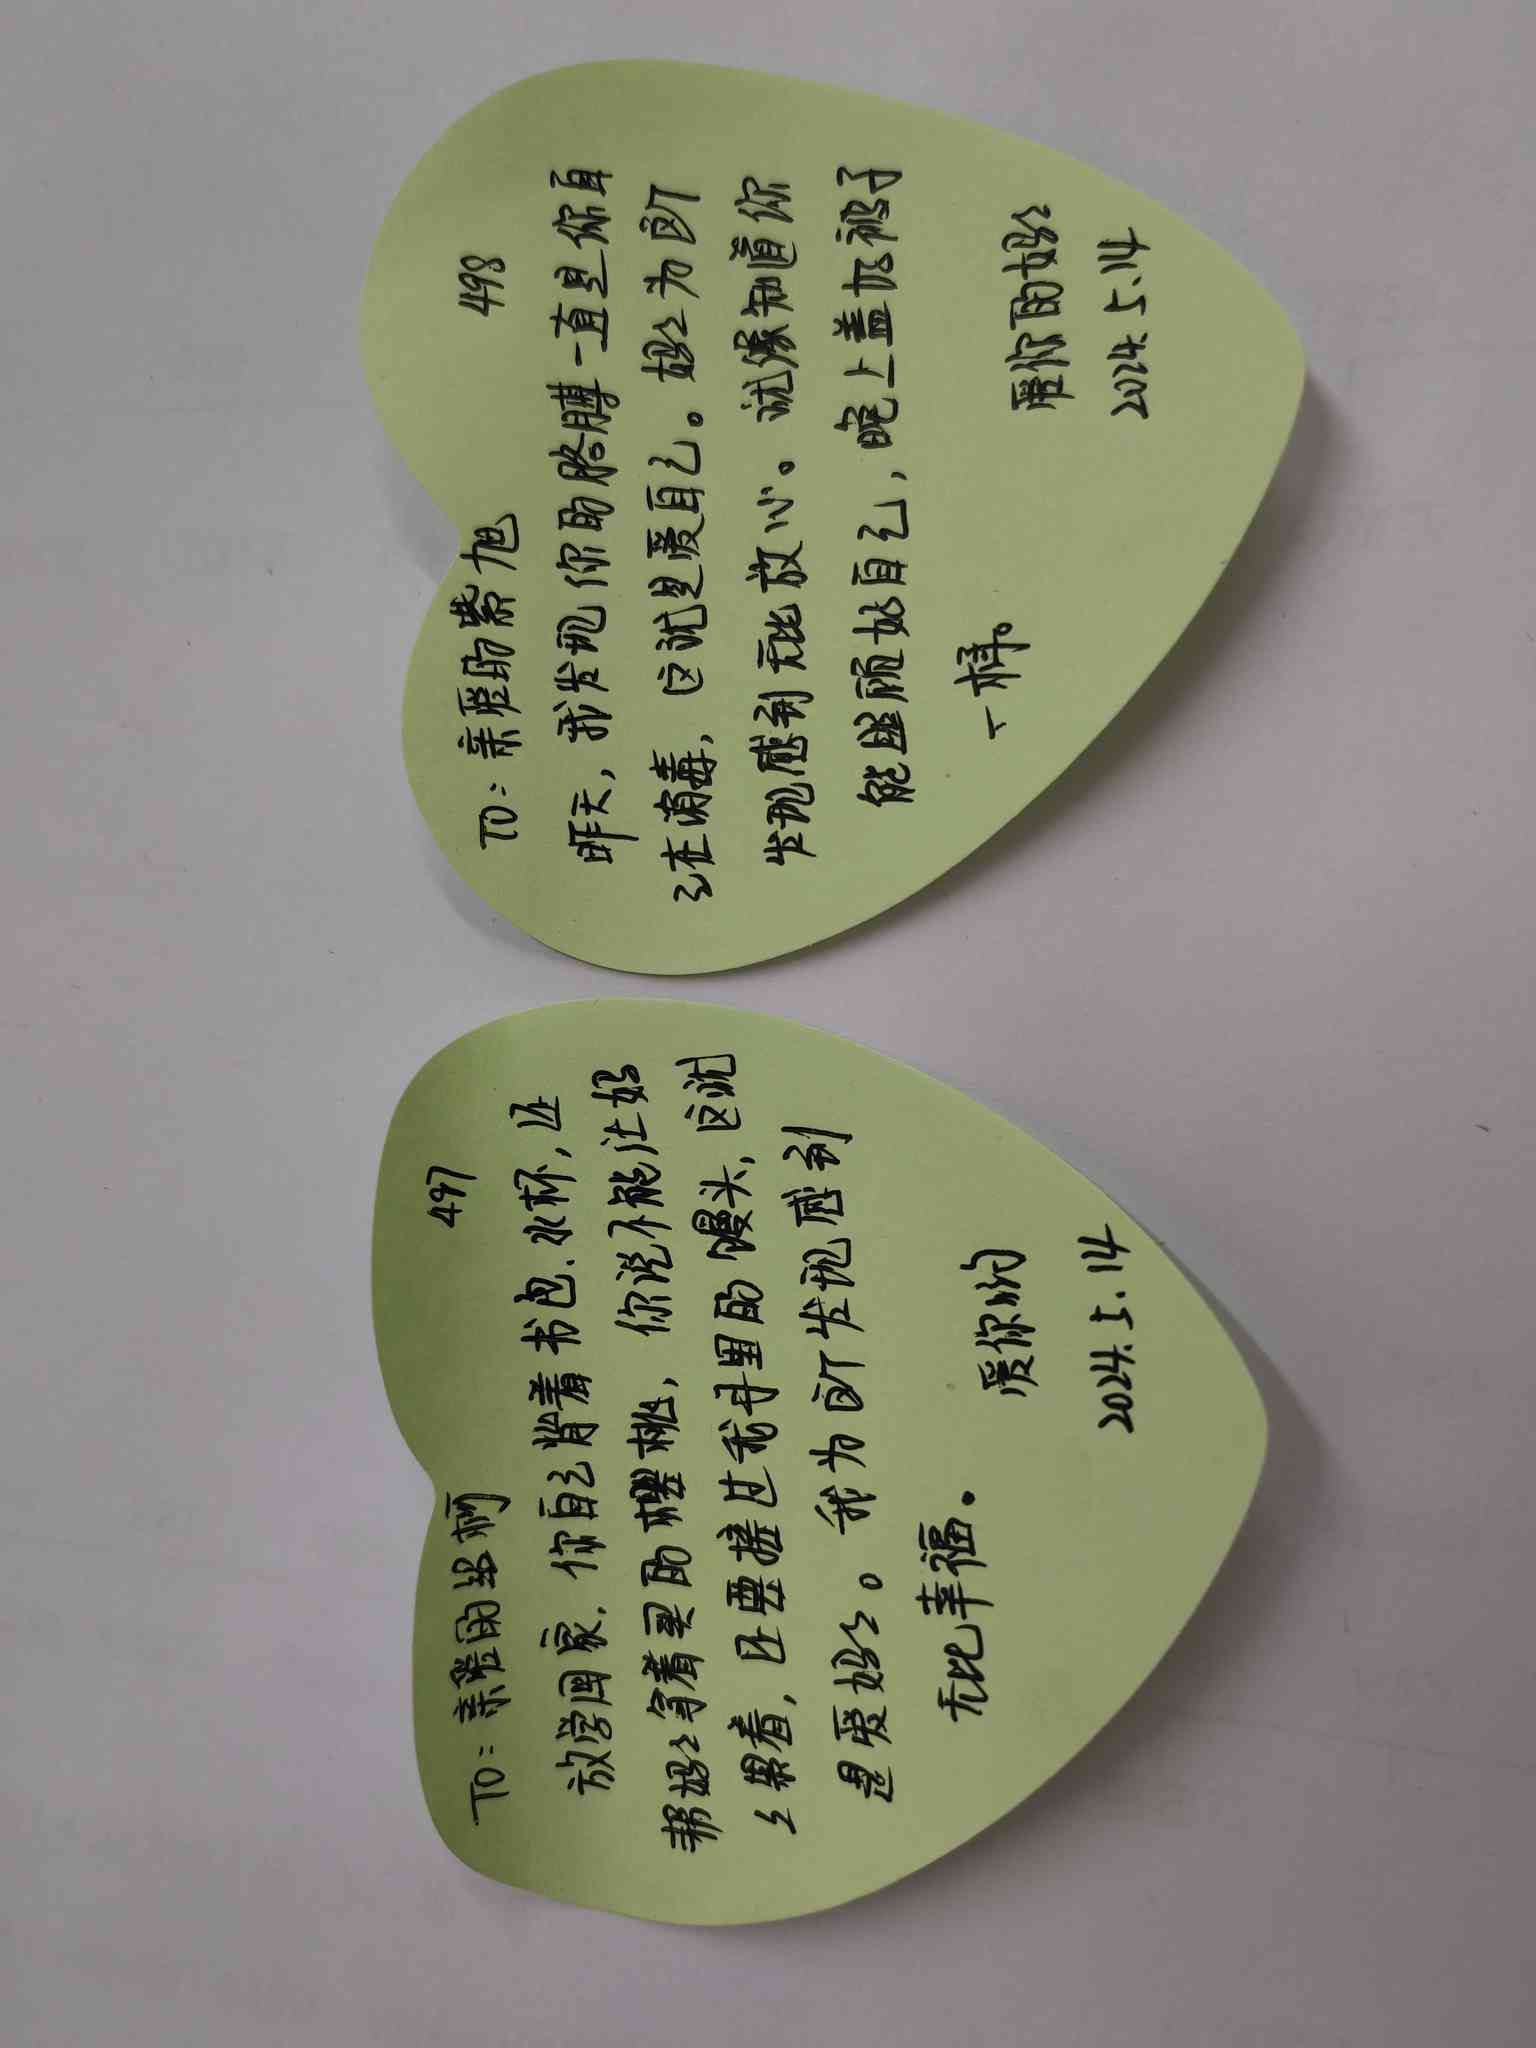 497
TO：亲爱的丝柯
放学回家，你自己背着书包、水杯，还
帮妈妈拿着买的樱桃，你说不能让妈
妈累着，还要接过我手里的馒头，这就
是爱妈妈。我为这个发现感到
无比幸福。
爱你的
2024.5.14
498
TO：亲爱的紫旭
昨天，我发现你的胳膊一直是你自
己在消毒，这就是爱自己。妈妈为这个
发现感到无比放心。就像知道你
能照顾好自己，晚上盖好被子
一样。
爱你的妈妈
2024.5.14